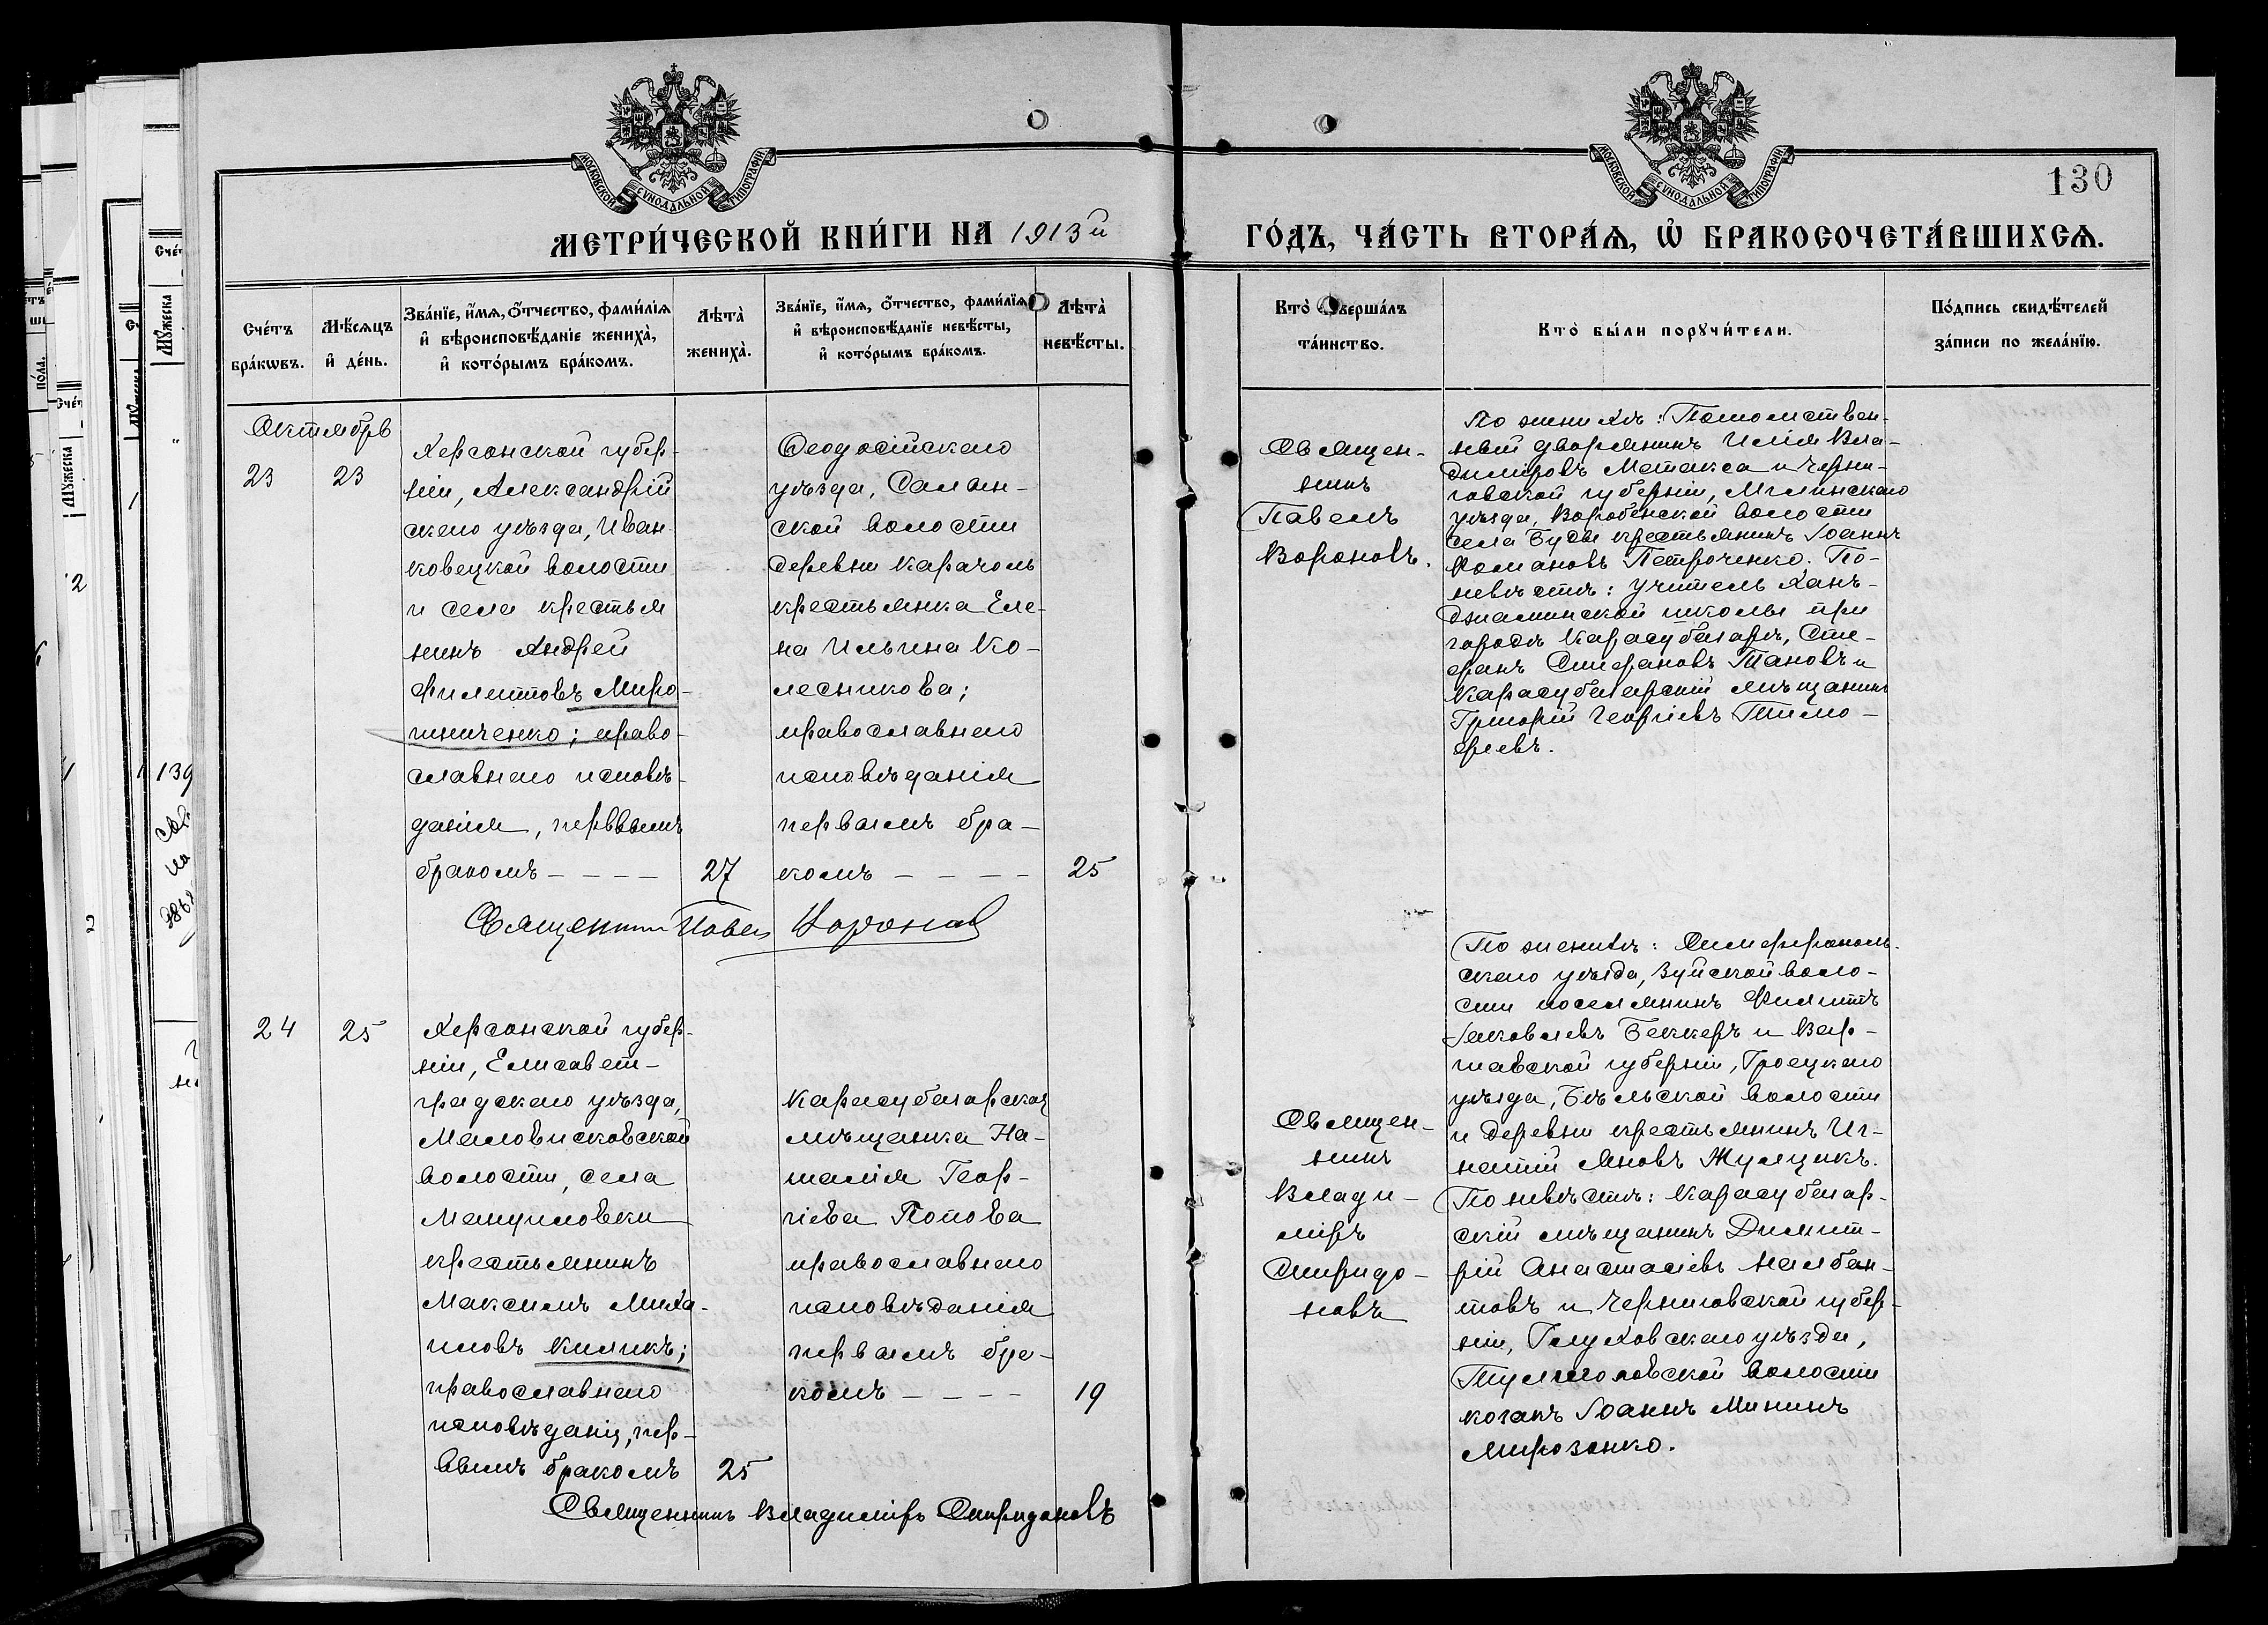 МОСКОВСКОЙ СѴНОДАЛЬНОЙ ТИПОГРАФІИ
МОСКОВСКОЙ СѴНОДАЛЬНОЙ ТИПОГРАФІИ
130
МЕТРИ́ЧЕСКОЙ КНИ́ГИ НА 1913й
ГО́ДЪ, ЧА́СТЬ ВТОРА́Ѧ, Ѽ БРАКОСОЧЕТА́ВШИХСѦ.
Сче́тъ
бра́кѡвъ.
Мѣ́сяцъ
и҆ де́нь.
Зва́нїе, и҆́мѧ, ѻ҆́тчество, фами́лїѧ
и҆ вѣроисповѣ́данїе жениха̀,
и҆ кото́рымъ бра́комъ.
Лѣта̀
жениха̀.
Зва́нїе, и҆́мѧ, ѻ҆́тчество, фами́лїѧ
и҆ вѣроисповѣ́данїе невѣ́сты,
и҆ кото́рымъ бра́комъ.
Лѣта̀
невѣ́сты.
Кто̀ соверша́лъ
та́инство.
Кто̀ бы́ли порꙋчи́тели.
По́дпись свидѣ́телей
за́писи по жела́нїю.
Октябрь
23
23
Херсонской губер-
ніи, Александрій
скаго уѣзда, Иван-
ковецкой волости
и села крестья
нинъ Андрей
Филипповъ Миро-
шниченко; право-
славнаго исповѣ-
данія, первымъ
бракомъ - - - -
27
Ѳеодосійскаго
уѣзда, Салын-
ской волости
деревни Карачоль
крестьянка Еле-
на Ильина Ко-
лесникова;
православнаго
исповѣданія
первымъ бра-
комъ - - - -
25
Священникъ Павелъ Вороновъ
Священ-
никъ
Павелъ
Вороновъ.
По женихѣ: Потомствен-
ный дворянинъ Илія Вла-
диміровъ Метакса и Черни-
говской губерніи, Мглинскаго
уѣзда, Воробенской волости
села Буды крестьянинъ Іоаннъ
Романовъ Петроченко. По-
невѣстѣ: Учитель Ханъ-
Джаминской школы при
городѣ Карасубазарѣ, Сте-
фанъ Стефановъ Тановъ и
Карасубазарскій мѣщанинъ
Григорій Георгіевъ Тимо-
феевъ.
24
25
Херсонской губер-
ніи, Елисавет-
градскаго уѣзда,
Маловисковской
волости, села
Мануиловки
крестьянинъ
Максимъ Миха-
иловъ Киликъ;
православнаго
исповѣданія, пер-
вымъ бракомъ
25
Карасубазарская
мѣщанка На-
талія Геор-
гіева Попова
православнаго
исповѣданія
первымъ бра-
комъ - - - -
19
Священникъ Владиміръ Спиридоновъ
Священ-
никъ
Влади-
міръ
Спиридо-
новъ
По женихѣ: Симферополь-
скаго уѣзда, Зуйской воло-
сти поселянинъ Филиппъ
Іаковлевъ Беккеръ и Вар-
шавской губерніи, Гроецкаго
уѣзда, Бѣльской волости
и деревни крестьянинъ Иг-
натій Яновъ Жулицкъ.
По невѣстѣ: Карасубазар-
скій мѣщанинъ Димит-
рій Анастасіевъ Налбан-
товъ и Черниговской губер-
ніи, Глуховскаго уѣзда,
Тулиголовской волости
козакъ Іоаннъ Мининъ
Мирозенко.